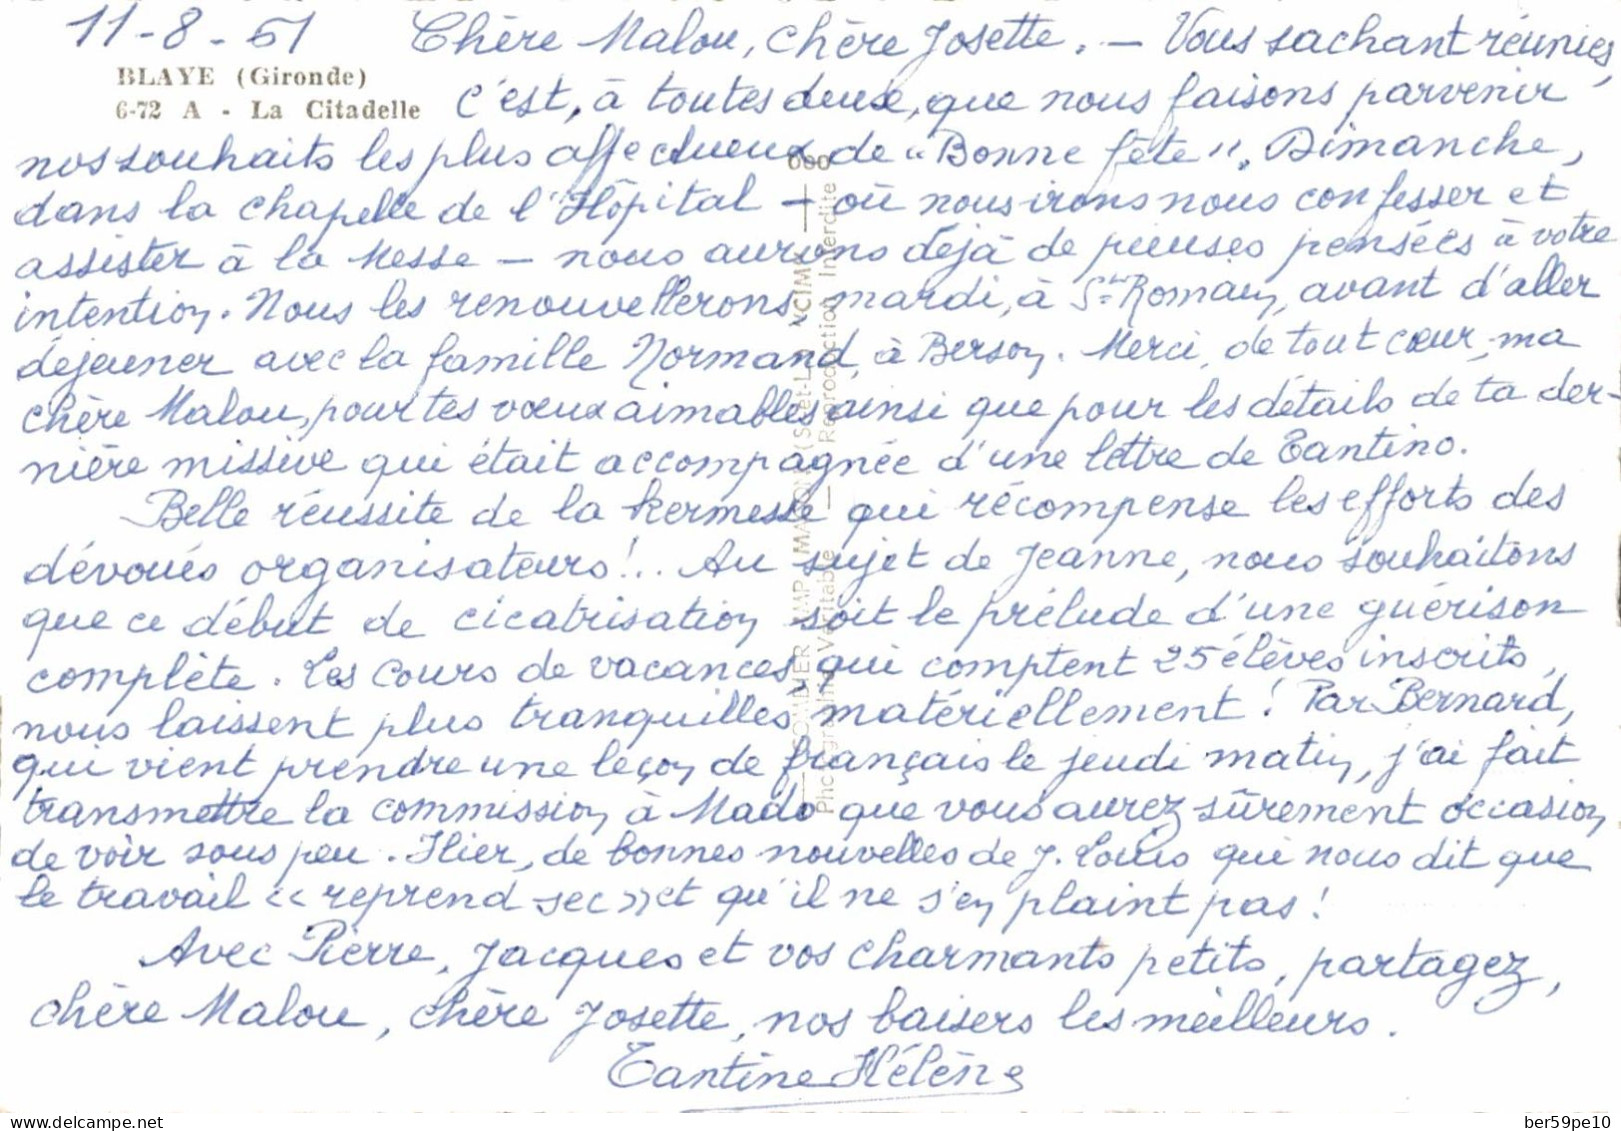 11-8-61 Chère Malou, chère Josette. — Vous sachant réunies,
BLAYE (Gironde)
6-72 A - La Citadelle
c'est, à toutes deux, que nous faisons parvenir
nos souhaits les plus affectueux de "Bonne fête". Dimanche,
dans la chapelle de l'Hôpital — où nous irons nous confesser et
assister à la Messe — nous aurons déjà de pieuses pensées à votre
intention. Nous les renouvellerons mardi, à St Romain, avant d'aller
déjeuner avec la famille Normand, à Berson. Merci, de tout cœur, ma
chère Malou, pour tes vœux aimables ainsi que pour les détails de ta der-
nière missive qui était accompagnée d'une lettre de Tantino.
Belle réussite de la kermesse qui récompense les efforts des
dévoués organisateurs!.. Au sujet de Jeanne, nous souhaitons
que ce début de cicatrisation soit le prélude d'une guérison
complète. Les cours de vacances, qui comptent 25 élèves inscrits,
nous laissent plus tranquilles matériellement! Par Bernard,
qui vient prendre une leçon de français le jeudi matin, j'ai fait
transmettre la commission à Mado que vous aurez sûrement occasion
de voir sous peu. Hier, de bonnes nouvelles de J. Louis qui nous dit que
le travail << reprend sec >> et qu'il ne s'en plaint pas!
Avec Pierre, Jacques et vos charmants petits, partagez,
chère Malou, chère Josette, nos baisers les meilleurs.
Tantine Hélène
Reproduction Interdite
ber59pe10